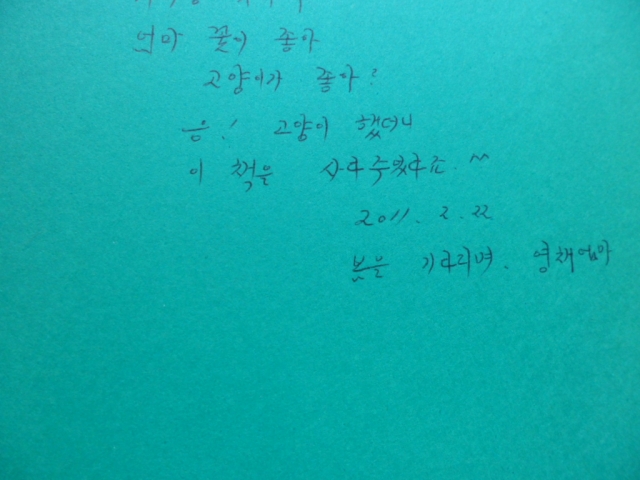 엄마 꽃이 좋아
고양이가 좋아?
음! 고양이 했더니
이 책을 사다주었다죠. ^^
2011. 2. 22
봄을 기다리며. 영채엄마